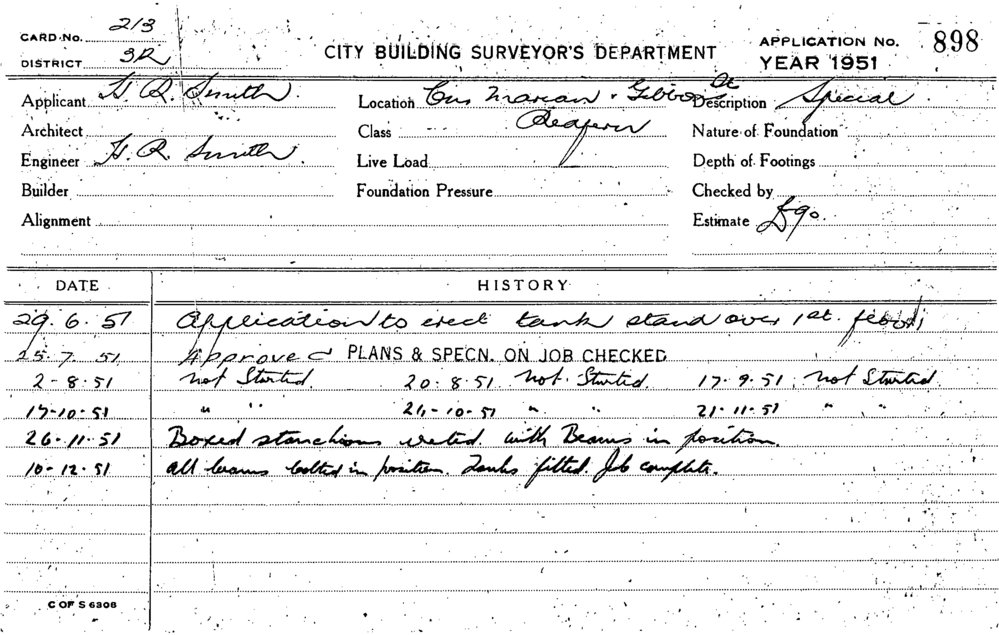 CARD No. 213
DISTRICT 3R
CITY BUILDING SURVEYOR'S DEPARTMENT
APPLICATION No. 898
YEAR 1951
Applicant H. R. Smith. Location Cnr Marian & Gibbons St Redfern Description Special
Architect Class Nature of Foundation
Engineer H. R. Smith. Live Load Depth of Footings
Builder Foundation Pressure Checked by
Alignment Estimate £90.
DATE HISTORY
29. 6. 51 Application to erect tank stand over 1st. floor
25. 7. 51 Approved PLANS & SPECN. ON JOB CHECKED
2-8.51 Not Started. 20.8.51 Not Started. 17.9.51. Not Started.
17-10.51 " " 24-10-51 " " 21.11.51 " "
26-11-51 Boxed stanchions with Beams in position.
10-12.51 All beams bolted in position. Tanks fitted. Job complete.
C OF S 6308